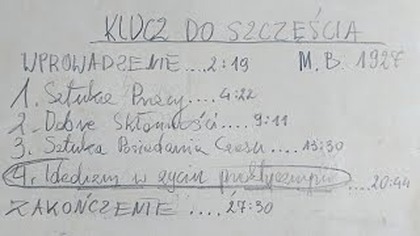 KLUCZ DO SZCZĘŚCIA
WPROWADZENIE....2:19 M.B. 1927
1. Sztuka Pracy.... 4:22
2. Dobre Skłonności.... 9:11
3. Sztuka Posiadania Czasu... 15:30
4. Idealizm w życiu praktycznym .... 20:44
ZAKOŃCZENIE .... 27:30